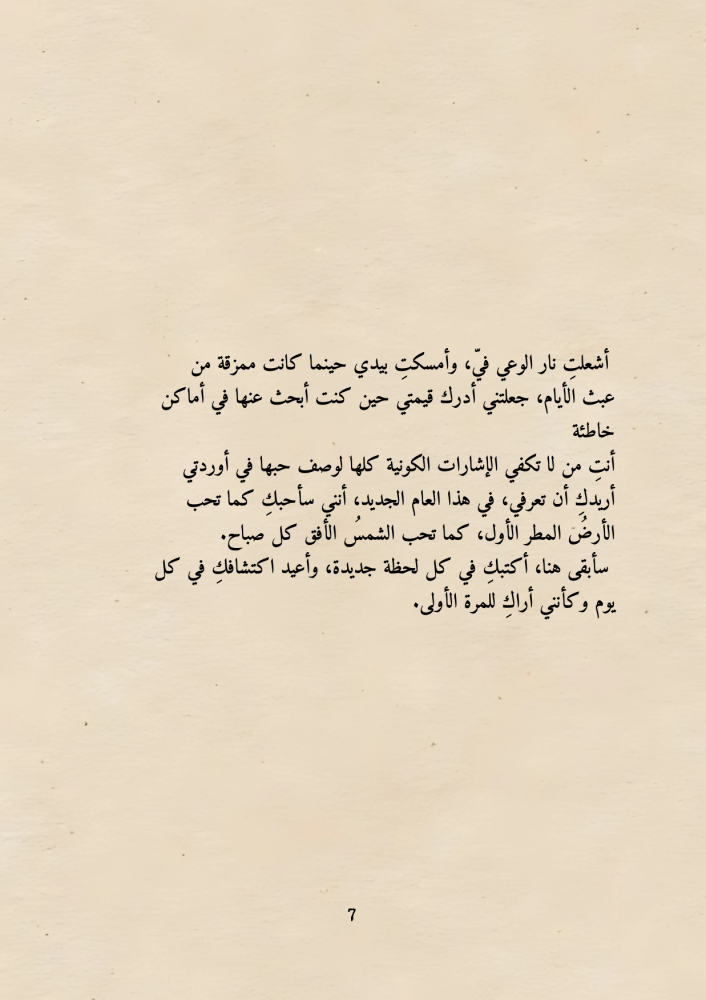 أشعلتِ نار الوعي فيّ، وأمسكتِ بيدي حينما كانت ممزقة من
عبث الأيام، جعلتني أدرك قيمتي حين كنت أبحث عنها في أماكن
خاطئة
أنتِ من لا تكفي الإشارات الكونية كلها لوصف حبها في أوردتي
أريدكِ أن تعرفي، في هذا العام الجديد، أنني سأحبكِ كما تحب
الأرضُ المطر الأول، كما تحب الشمسُ الأفق كل صباح.
سأبقى هنا، أكتبكِ في كل لحظة جديدة، وأعيد اكتشافكِ في كل
يوم وكأنني أراكِ للمرة الأولى.
7